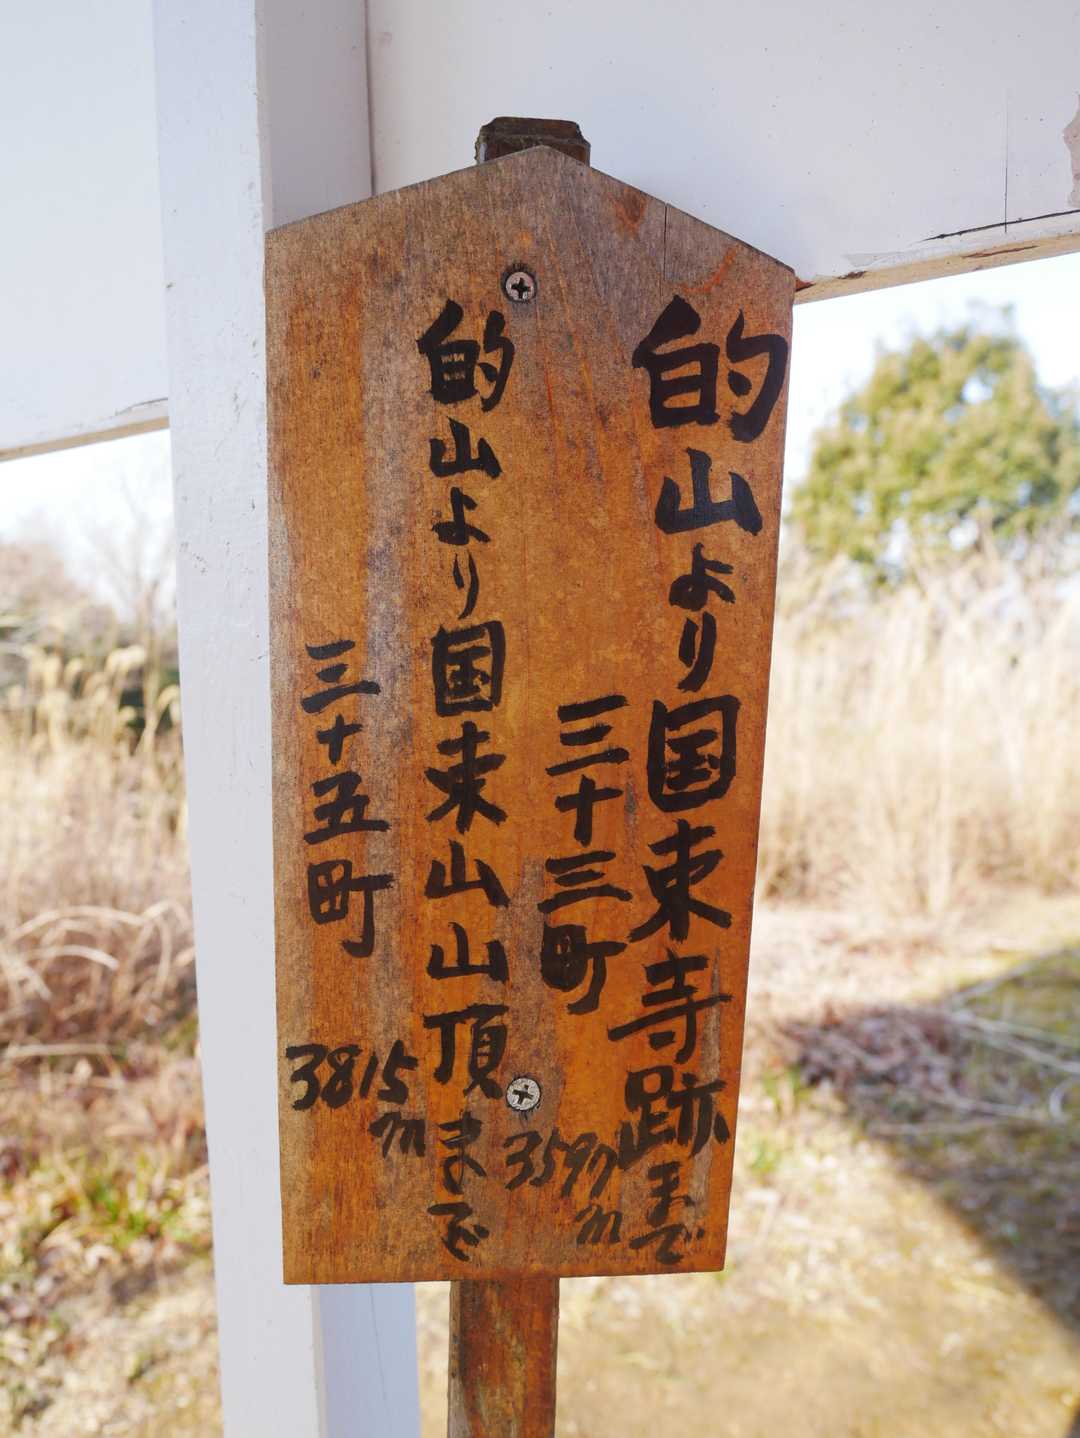 的山より国束寺跡まで
三十三町
3597m
的山より国束山山頂まで
三十五町
3815m